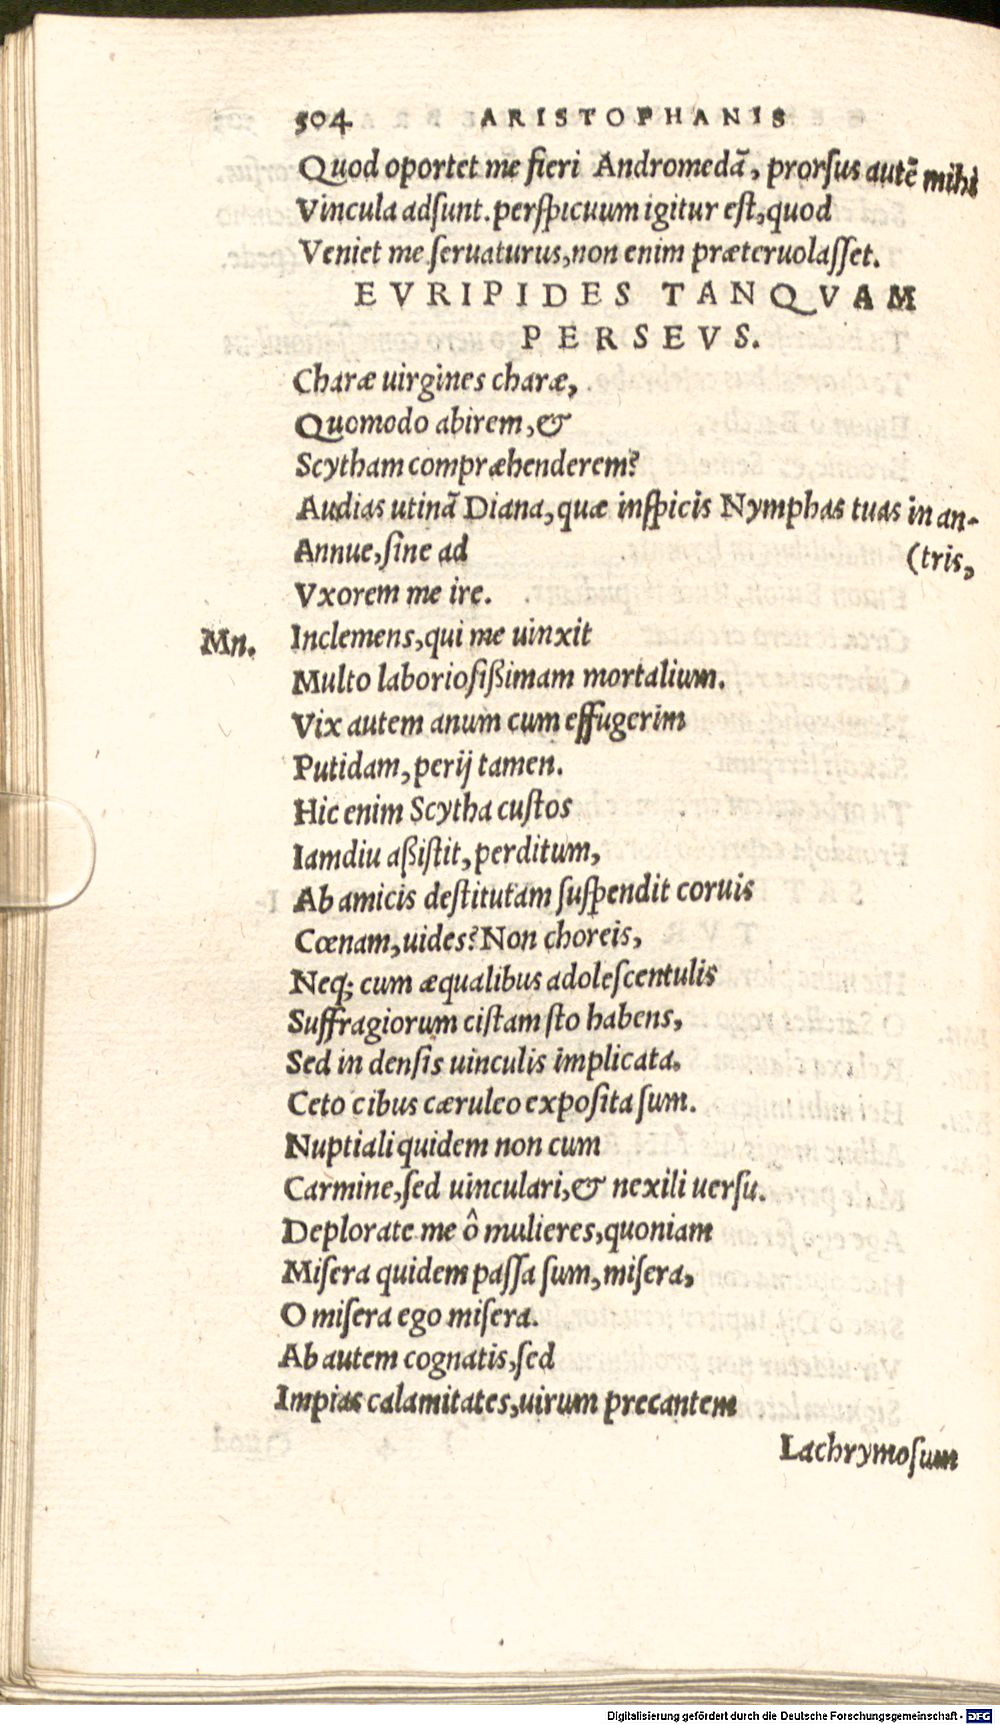 504 ARISTOPHANIS
Quod oportet me fieri Andromedā, prorſus autē mihi
Vincula adſunt. perſpicuum igitur eſt, quod
Veniet me ſeruaturus, non enim præteruolaſſet.
EVRIPIDES TANQVAM
PERSEVS.
Charæ uirgines charæ,
Quomodo abirem, &
Scytham compræhenderem?
Audias utinā Diana, quæ inſpicis Nymphas tuas in an-
Annue, ſine ad (tris,
Vxorem me ire.
Mn. Inclemens, qui me uinxit
Multo laborioſißimam mortalium.
Vix autem anum cum effugerim
Putidam, perij tamen.
Hic enim Scytha cuſtos
Iamdiu aßiſtit, perditum,
Ab amicis deſtitutam ſuſpendit coruis
Cœnam, uides? Non choreis,
Neq; cum æqualibus adoleſcentulis
Suffragiorum ciſtam ſto habens,
Sed in denſis uinculis implicata.
Ceto cibus cæruleo expoſita ſum.
Nuptiali quidem non cum
Carmine, ſed uinculari, & nexili uerſu.
Deplorate me ô mulieres, quoniam
Miſera quidem paſſa ſum, miſera,
O miſera ego miſera.
Ab autem cognatis, ſed
Impias calamitates, uirum precantem
Lachrymoſum
Digitalisierung gefördert durch die Deutsche Forschungsgemeinschaft - DFG